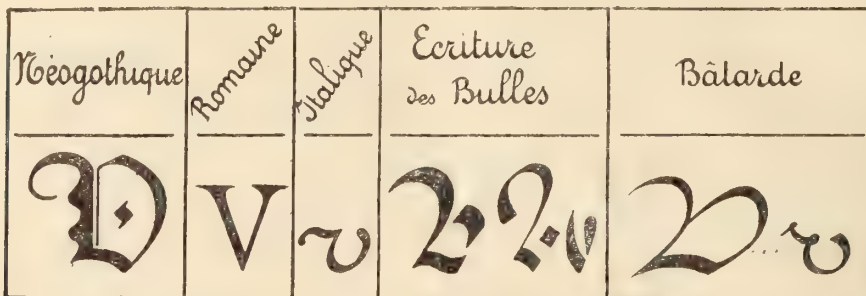 Néogothique
Romaine
Italique
Ecriture
des Bulles
Bâtarde
V
V
v
V V v
V ... v